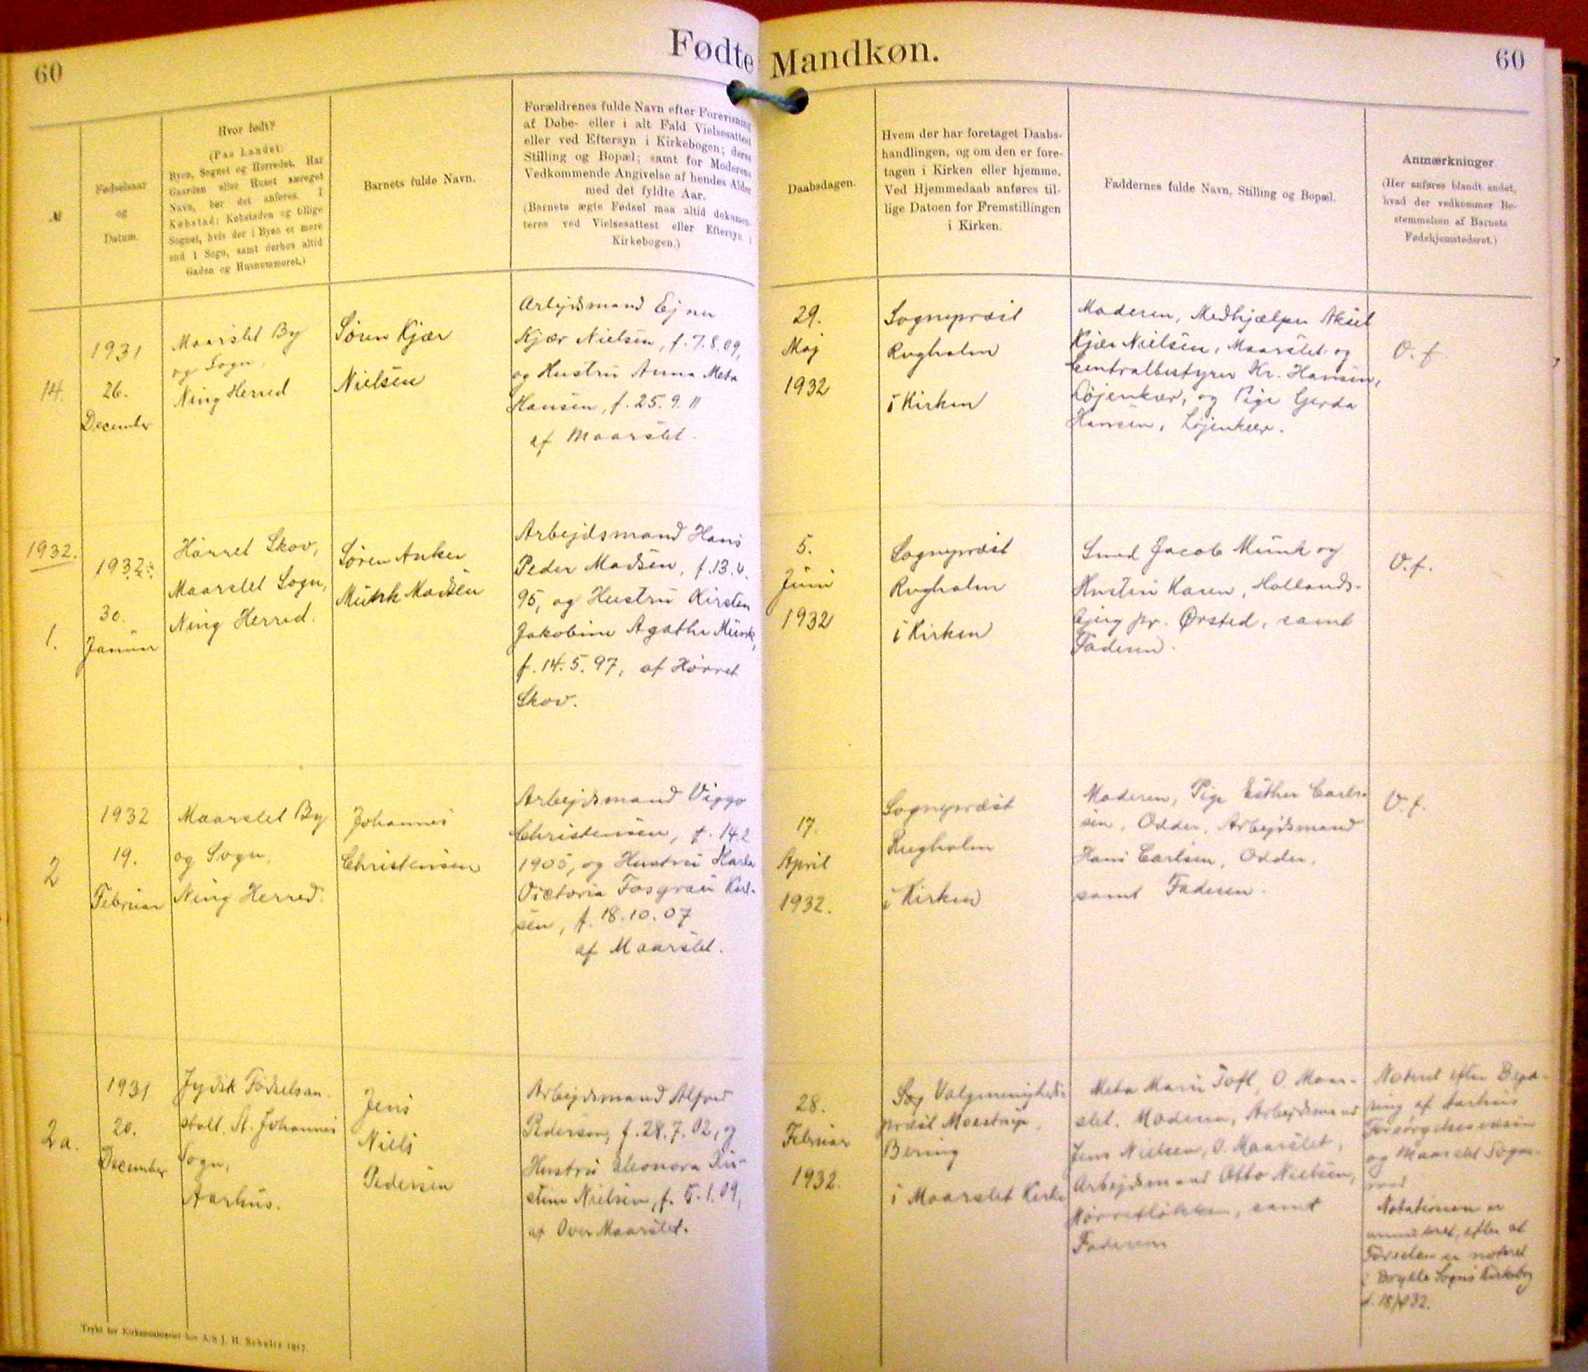 60
Fødte
Mandkøn.
60
№
Fødselsaar
og
Datum.
Hvor født?
(Paa Landet:
Byen, Sognet og Herredet. Har
Gaarden eller Huset særeget
Navn, bør det anføres. I
Købstad: Købstaden og tillige
Sognet, hvis der i Byen er mere
end 1 Sogn, samt derhos altid
Gaden og Husnummeret.)
Barnets fulde Navn.
Forældrenes fulde Navn efter Forevisning
af Døbe- eller i alt Fald Vielsesattest
eller ved Eftersyn i Kirkebogen; deres
Stilling og Bopæl; samt for Moderens
Vedkommende Angivelse af hendes Alder
med det fyldte Aar.
(Barnets ægte Fødsel maa altid dokumen-
teres ved Vielsesattest eller Eftersyn i
Kirkebogen.)
Daabsdagen.
Hvem der har foretaget Daabs-
handlingen, og om den er fore-
tagen i Kirken eller hjemme.
Ved Hjemmedaab anføres til-
lige Datoen for Fremstillingen
i Kirken.
Faddernes fulde Navn, Stilling og Bopæl.
Anmærkninger
(Her anføres blandt andet,
hvad der vedkommer Be-
stemmelsen af Barnets
Fødehjemstedsret.)
14.
1931
26.
December
Maarslet By
og Sogn,
Ning Herred
Søren Kjær
Nielsen
Arbejdsmand Ejnar
Kjær Nielsen, f. 7.8.09,
og Hustru Anna Meta
Hansen, f. 25.9.11
af Maarslet.
29.
Maj
1932
Sognepræst
Rugholm
i Kirken
Moderen, Medhjælper Aksel
Kjær Nielsen, Maarslet og
Centralbestyrer Kr. Hansen,
Løjenkær, og Pige Gerda
Hansen, Løjenkær.
V. f.
1932.
1.
1932
30.
Januar
Hørret Skov,
Maarslet Sogn,
Ning Herred.
Søren Anker
Munk Madsen
Arbejdsmand Hans
Peder Madsen, f. 13.4.
95, og Hustru Kirsten
Jakobine Agathe Munk,
f. 14.5.97, af Hørret
Skov.
5.
Juni
1932
Sognepræst
Rugholm
i Kirken
Smed Jacob Munk og
Hustru Karen, Hollands-
bjerg pr. Ørsted, samt
Faderen.
V. f.
2
1932
19.
Februar
Maarslet By
og Sogn,
Ning Herred.
Johannes
Christensen
Arbejdsmand Viggo
Christensen, f. 14.2
1905, og Hustru Karla
Victoria Fosgrau
sen, f. 18.10.07
af Maarslet.
17.
April
1932.
Sognepræst
Rugholm
i Kirken
Moderen, Pige Esther Carl-
sen, Odder, Arbejdsmand
Hans Carlsen, Odder,
samt Faderen.
V. f.
2a.
1931
20.
December
Jydsk Fødselsan-
stalt, St. Johannes
Sogn,
Aarhus.
Jens
Niels
Pedersen
Arbejdsmand Alfred
Pedersen, f. 28.7.02, og
Hustru Eleonora Kir-
stine Nielsen, f. 5.1.09,
af Over Maarslet.
28.
Februar
1932.
Sog Valgmenigheds-
præst Moestrup,
Bering
i Maarslet Kirke
Meta Marie Toft, O. Maar-
slet, Moderen, Arbejdsmand
Jens Nielsen, O. Maarslet,
Arbejdsmand Otto Nielsen,
Nørre, samt
Faderen
Noteret efter Begæ-
ring af Aarhus
Forsørgelsesvæsen
og Maarslet Sogne-
raad.
Notationen er
annulleret, efter at
Fødselen er noteret
i Sogns Kirkebog
d. 18/4 32.
Trykt for Kirkeministeriet hos A/S J. H. Schultz 1917.